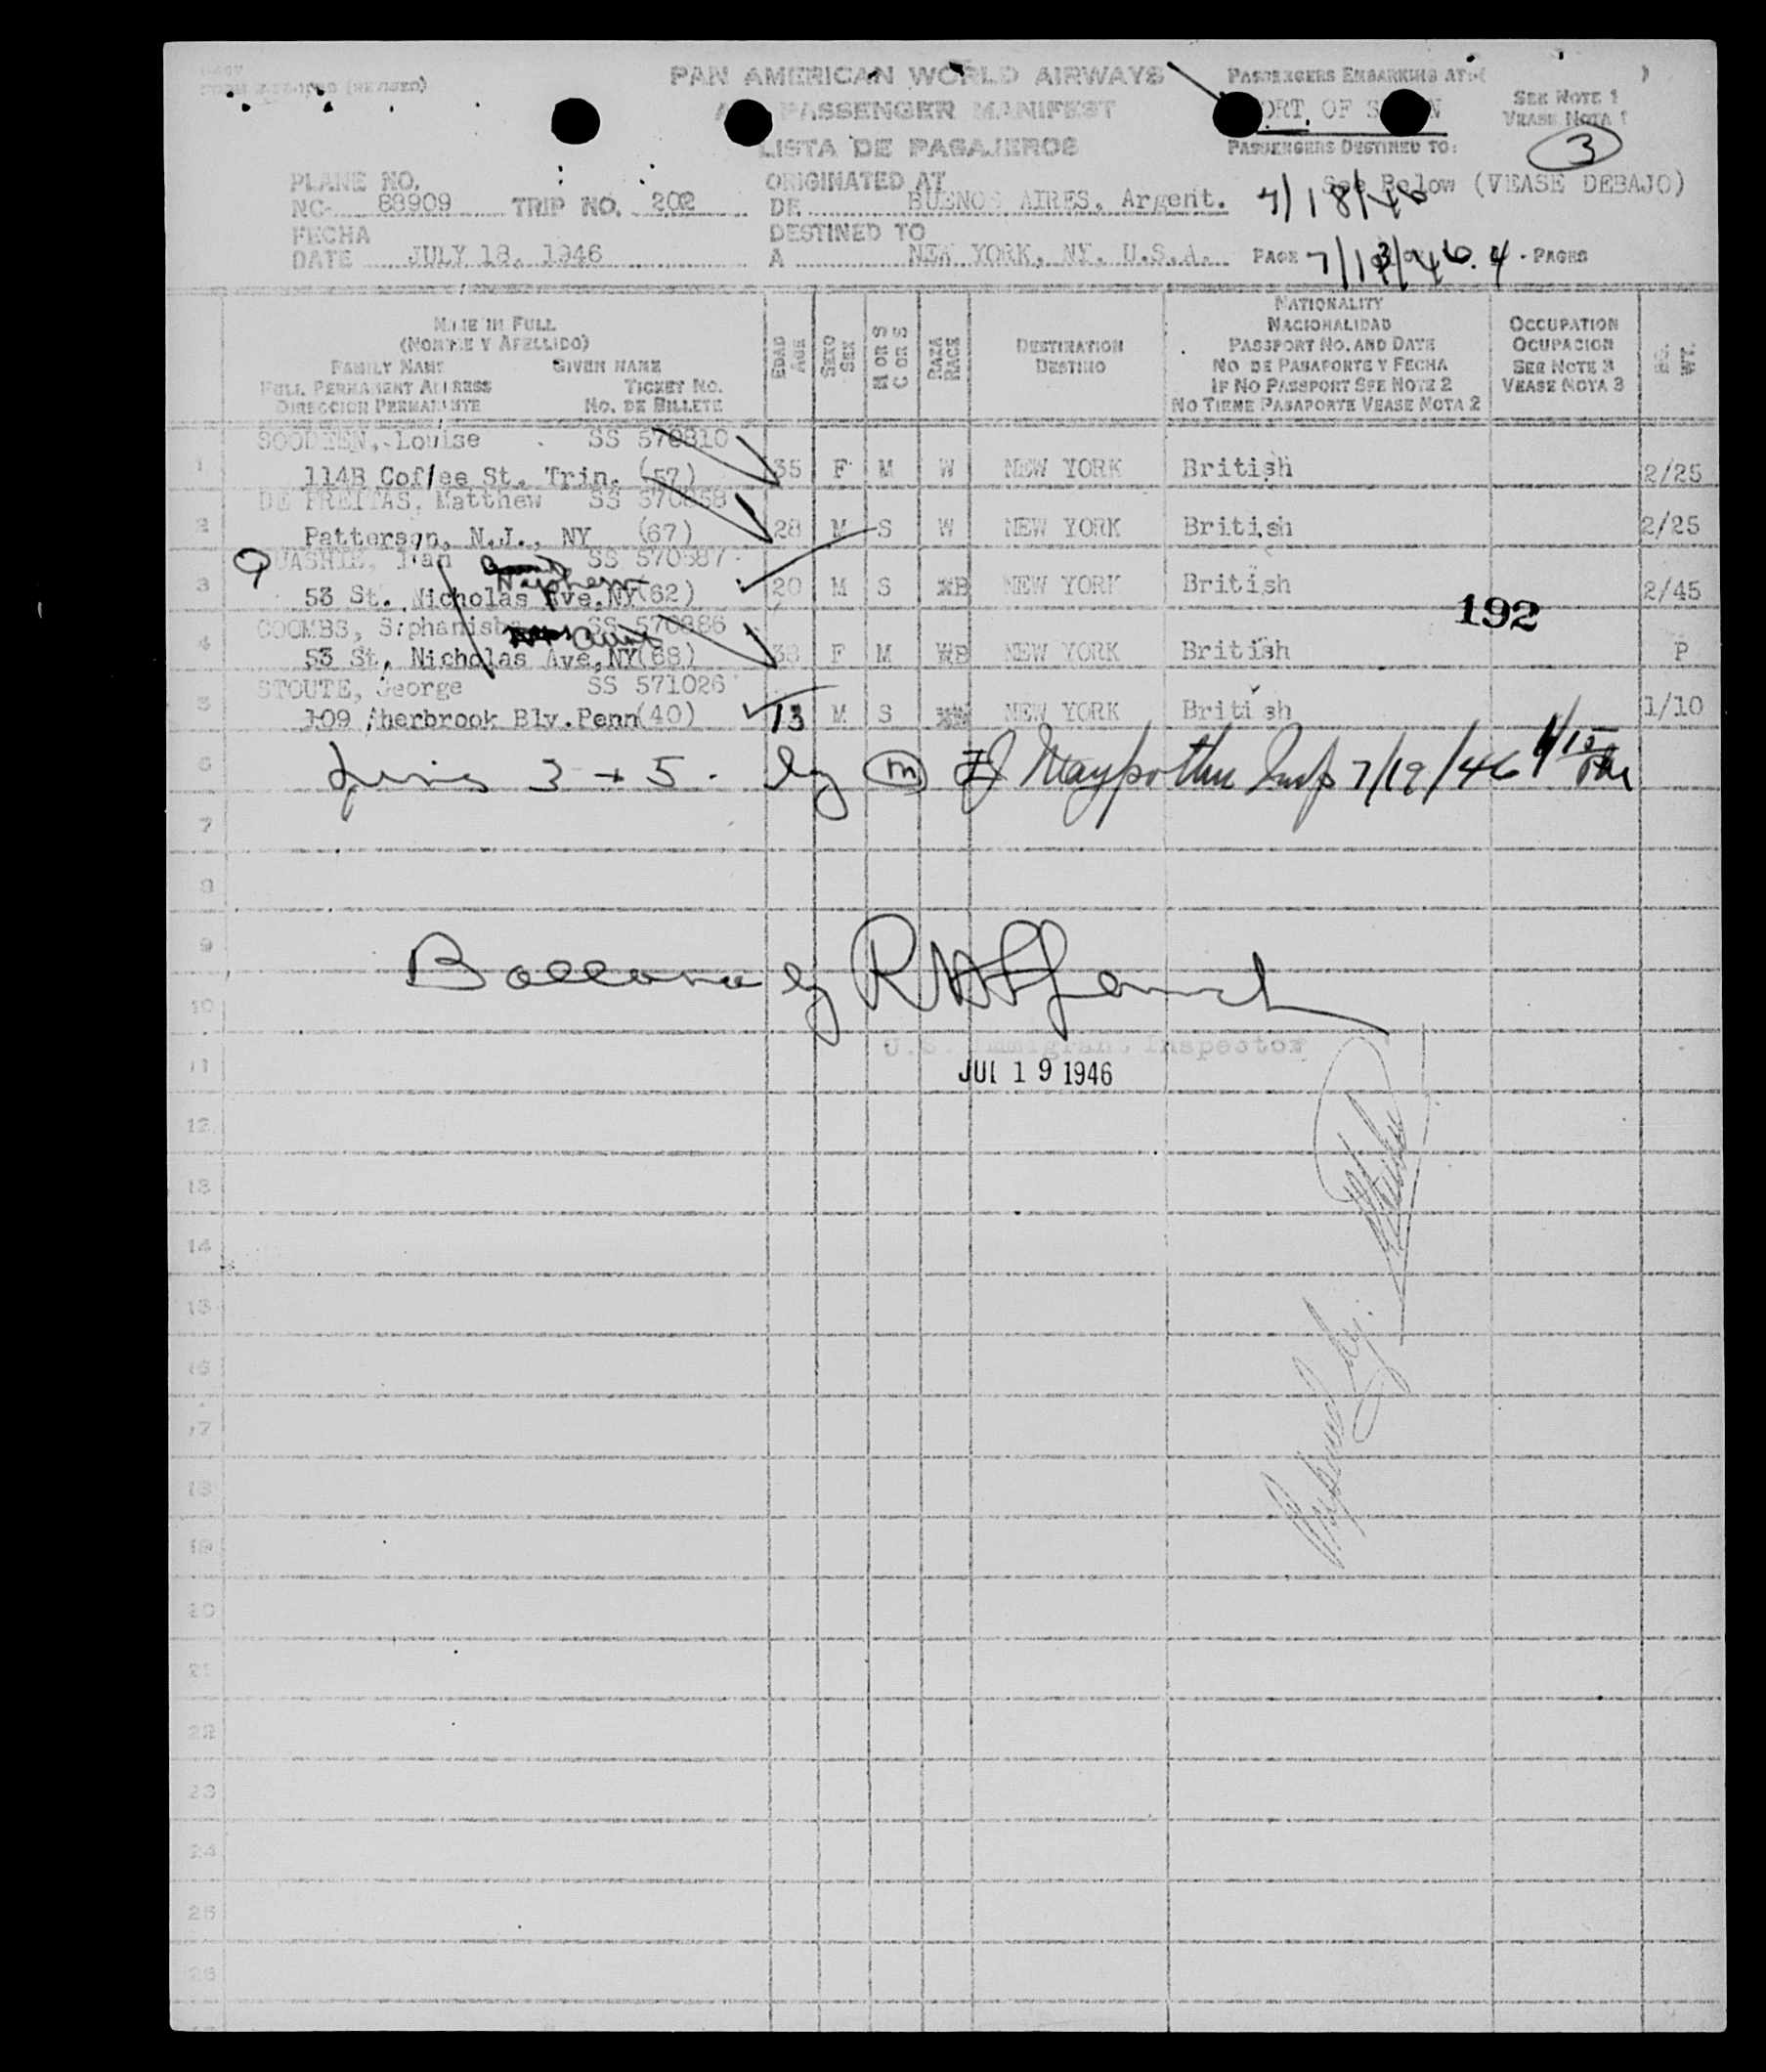 (REVISED)
PAN AMERICAN WORLD AIRWAYS
PASSENGER MANIFEST
LISTA DE PASAJEROS
PASSENGERS EMBARKING AT:( )
PORT OF S N
SEE NOTE 1
VEASE NOTA 1
3
PASSENGERS DESTINED TO:
See Below (VEASE DEBAJO)
7/18/46
PLANE NO.
NC- 88909 TRIP NO. 202
ORIGINATED AT
DE BUENOS AIRES, Argent.
FECHA
DATE JULY 18, 1946
DESTINED TO
A NEW YORK, NY. U.S.A.
PAGE 7/18/46. 4 - PAGES
NAME IN FULL
(NOMBRE Y APELLIDO)
FAMILY NAME GIVEN NAME
FULL PERMANENT ADDRESS TICKET NO.
DIRECCION PERMANENTE NO. DE BILLETE
EDAD
AGE
SEXO
SEX
M OR S
C OR S
RAZA
RACE
DESTINATION
DESTINO
NATIONALITY
NACIONALIDAD
PASSPORT NO. AND DATE
NO DE PASAPORTE Y FECHA
IF NO PASSPORT SEE NOTE 2
NO TIENE PASAPORTE VEASE NOTA 2
OCCUPATION
OCUPACION
SEE NOTE 3
VEASE NOTA 3
WT.
Louise SS 570810
1 114B Coffee St. Trin. (57) 35 F M W NEW YORK British 2/25
DE FREITAS, Matthew SS 570858
2 Patterson, N.J., NY (67) 28 M S W NEW YORK British 2/25
QUASHIE, Ivan SS 570887
Nephew
3 53 St. Nicholas Ave,NY(62) 20 M S B NEW YORK British 2/45
192
COOMBS, SS 570886
Aunt
4 53 St. Nicholas Ave,NY(68) 38 F M B NEW YORK British P
STOUTE, George SS 571026
5 109 Sherbrook Blv.Penn(40) 13 M S NEW YORK British 1/10
6 Lines 3 + 5. by (m) Insp 7/19/46
7
8
9
by
10
U.S. Immigrant Inspector
11 JUL 19 1946
12
13
14
15
16
17
18
19
20
21
22
23
24
25
26